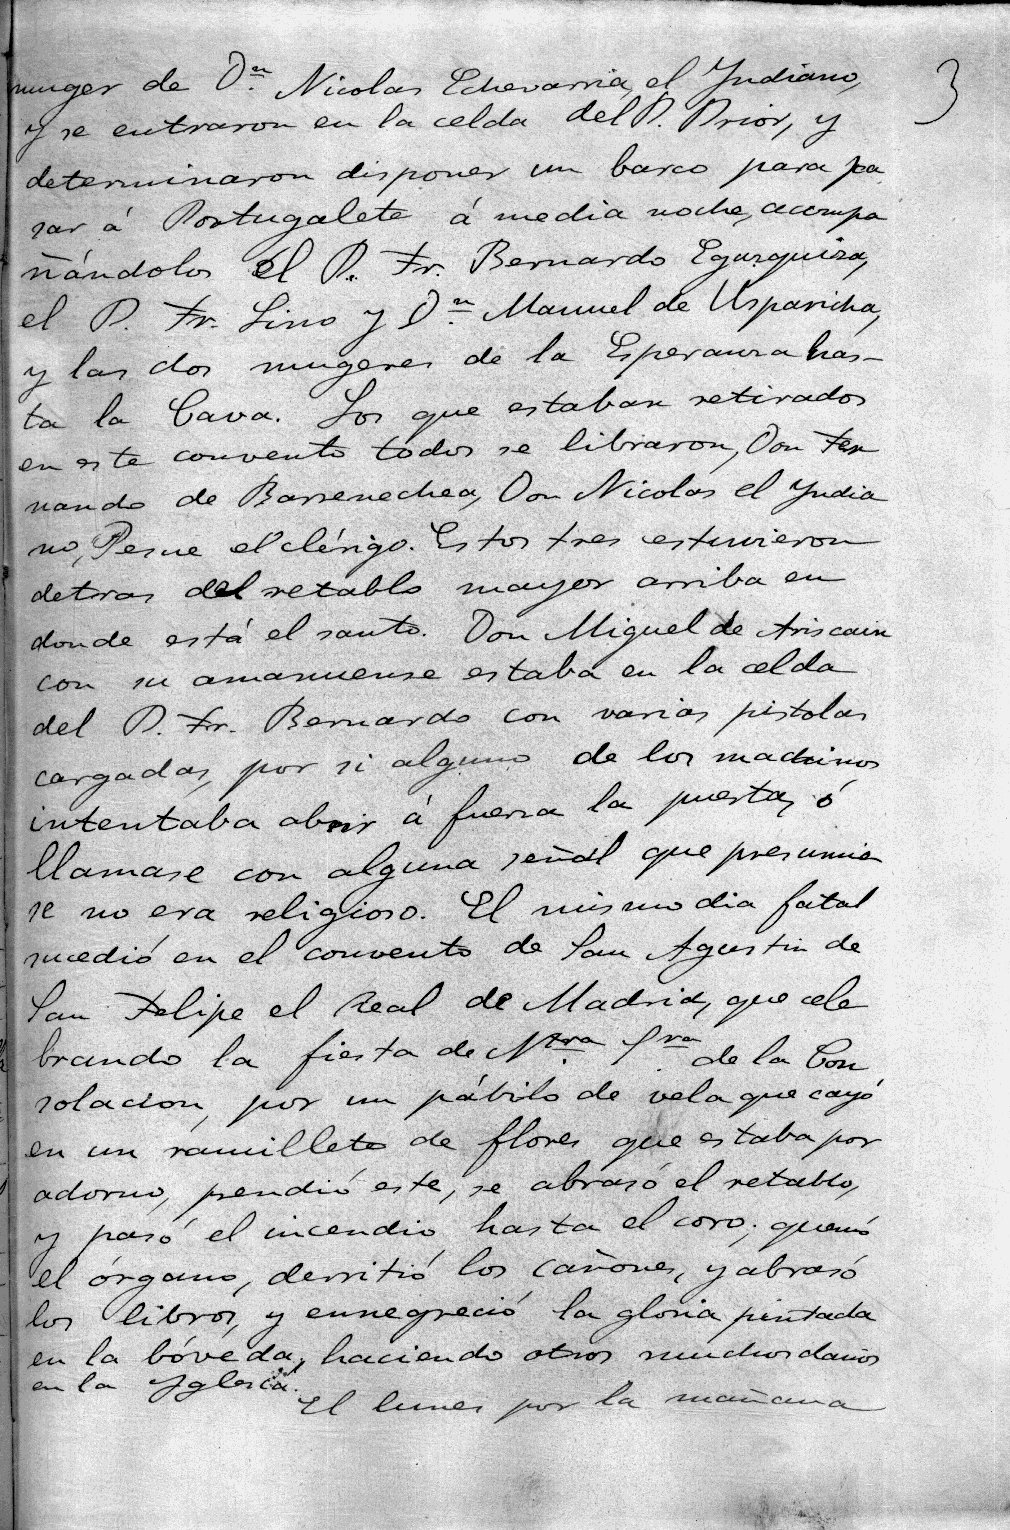 muger de Dn. Nicolas Echevarria, el Yndiano, 3
y se entraron en la celda del P. Prior, y
determinaron disponer un barco para pa
sar á Portugalete á media noche, acompa
ñándolos el P. Fr. Bernardo Egazquiza,
el P. Fr. Lino y Dn. Manuel de Usparicha,
y las dos mugeres de la Esperanza has-
ta la Cava. Los que estaban retirados
en este convento todos se libraron, Don Fer
nando de Barrenechea, Don Nicolas el Yndia
no, el clérigo. Estos tres estuvieron
detras del retablo mayor arriba en
donde está el santo. Don Miguel de Ariscain
con su amanuense estaba en la celda
del P. Fr. Bernardo con varias pistolas
cargadas, por si alguno de los machinos
intentaba abrir á fuerza la puerta, ó
llamase con alguna señal que presumie
se no era religioso. El mismo dia fatal
sucedió en el convento de San Agustin de
San Felipe el Real de Madrid, que cele
brando la fiesta de Ntra. Sra. de la Con
solacion, por un pábilo de vela que cayó
en un ramillete de flores que estaba por
adorno, prendió este, se abrasó el retablo,
y pasó el incendio hasta el coro; quemó
el órgano, derritió los cañones, y abrasó
los libros, y ennegreció la gloria pintada
en la bóveda, haciendo otros muchos daños
en la Yglesia.
El lunes por la mañana